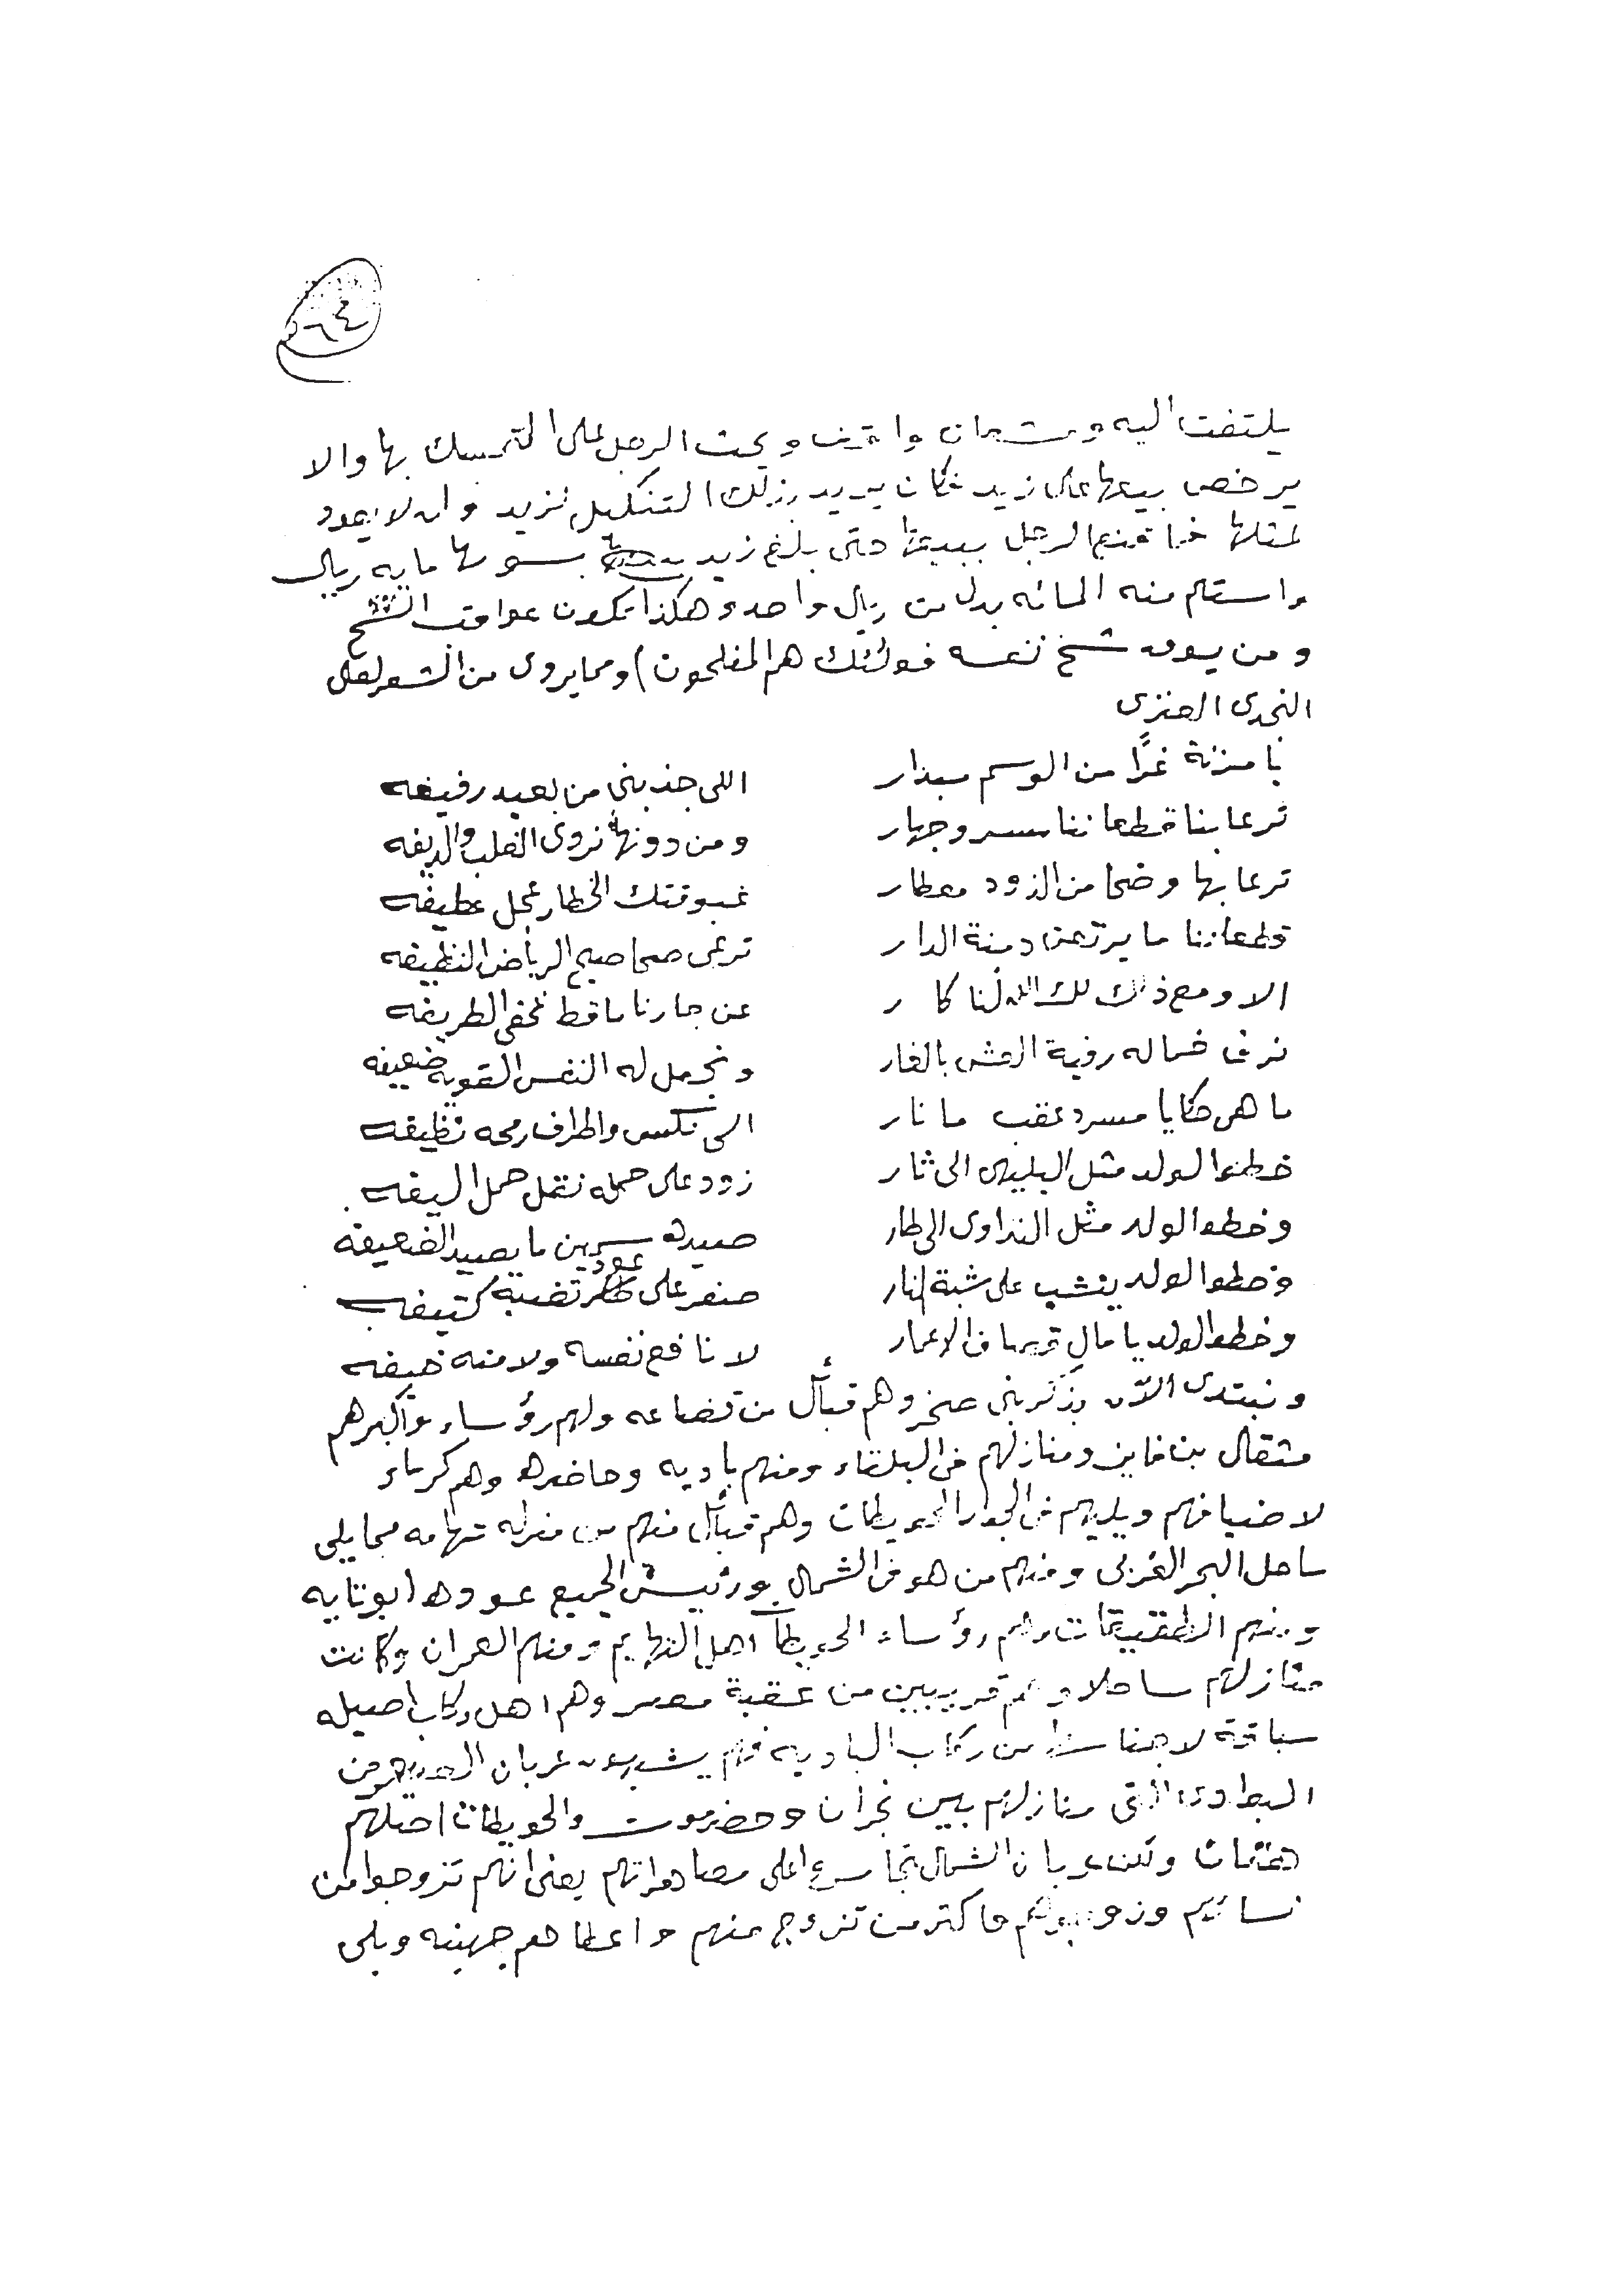 يلتفت اليه وشعان واقف ويحث الرجل على التمسك بها والا
يرخص بيعها على زيد فكان يريد بذلك التنكيل لزيد وان لا يعود
لمثلها فما قنع الرجل ببيعها حتى بلغ زيد بسومها مايه ريال
واستلم منه المائه بدل من ريال واحد وهكذا تكون عواقب الشح
ومن يوق شح نفسه فولئك هم المفلحون) ومما يروى من الشعر لعلي
النجدى العنزى
يا مزنة غرًا من الوسم مبدار
اللى جذبني من بعيد رفيفه
ترعا بنا قطعاننا سر وجهار
ومن دونها نروى الغلب والرهيفه
ترعا بها وضحا من الذود معطار
غبوقتك الخطار عجل عطيفه
قطعاننا ما يرتعن دمنة الدار
ترعى صحاصيح الرياض النظيفه
الا ومع ذلك لك الله لنا كار
عن جارنا ما قط نخفى الطريفه
نرف خماله رفية العش بالغار
ونجمل له النفس القويه ضعيفه
ما هى حكايا مسرد عقب ما نار
الى نكس واطراف رمحه نظيفه
خطوا الولد مثل البليهي الى ثار
زود على حمله نقل حمل اليفه
وخطوا الولد مثل النداوى الى طار
صيده سمين ما يصيد الضعيفه
وخطوا الولد ينشب على شبة النار
صنفر على عود تقضبه كتيفه
وخطوا الولد يا مال قريها في الاعمار
لا نافع نفسه ولا منه خيفه
ونبتدى الآن بذكر بنى صخر وهم قبائل من قضاعه ولهم رؤساء واكبرهم
مثقال بن فايز ومنازلهم في البلقاء ومنهم باديه وحاضره وهم كرماء
لاضيافهم ويليهم في الجوار الحويطات وهم قبائل منهم من منزله تهامه مما يلى
ساحل البحر الغربى ومنهم من هو في الشمال ورئيس الجميع عوده ابو تايه
ومنهم الطقيقات وهم رؤساء الحويطات اهل التهايم ومنهم العمران وكانت
منازلهم ساحلا وهم قريبين من عقبة مصر وهم اهل ركاب اصيله
سباقة لاجناسها من ركاب الباديه فهم يشبهون عربان
البوادى التى منازلهم بين نجران وحضرموت والحويطات اصلهم
هتمات ولكن عربان الشمال تجاسروا على مصاهراتهم يعنى انهم تزوجوا من
نسائهم وزوجوهم واكثر من تزوج منهم واعطاهم جهينه وبلى